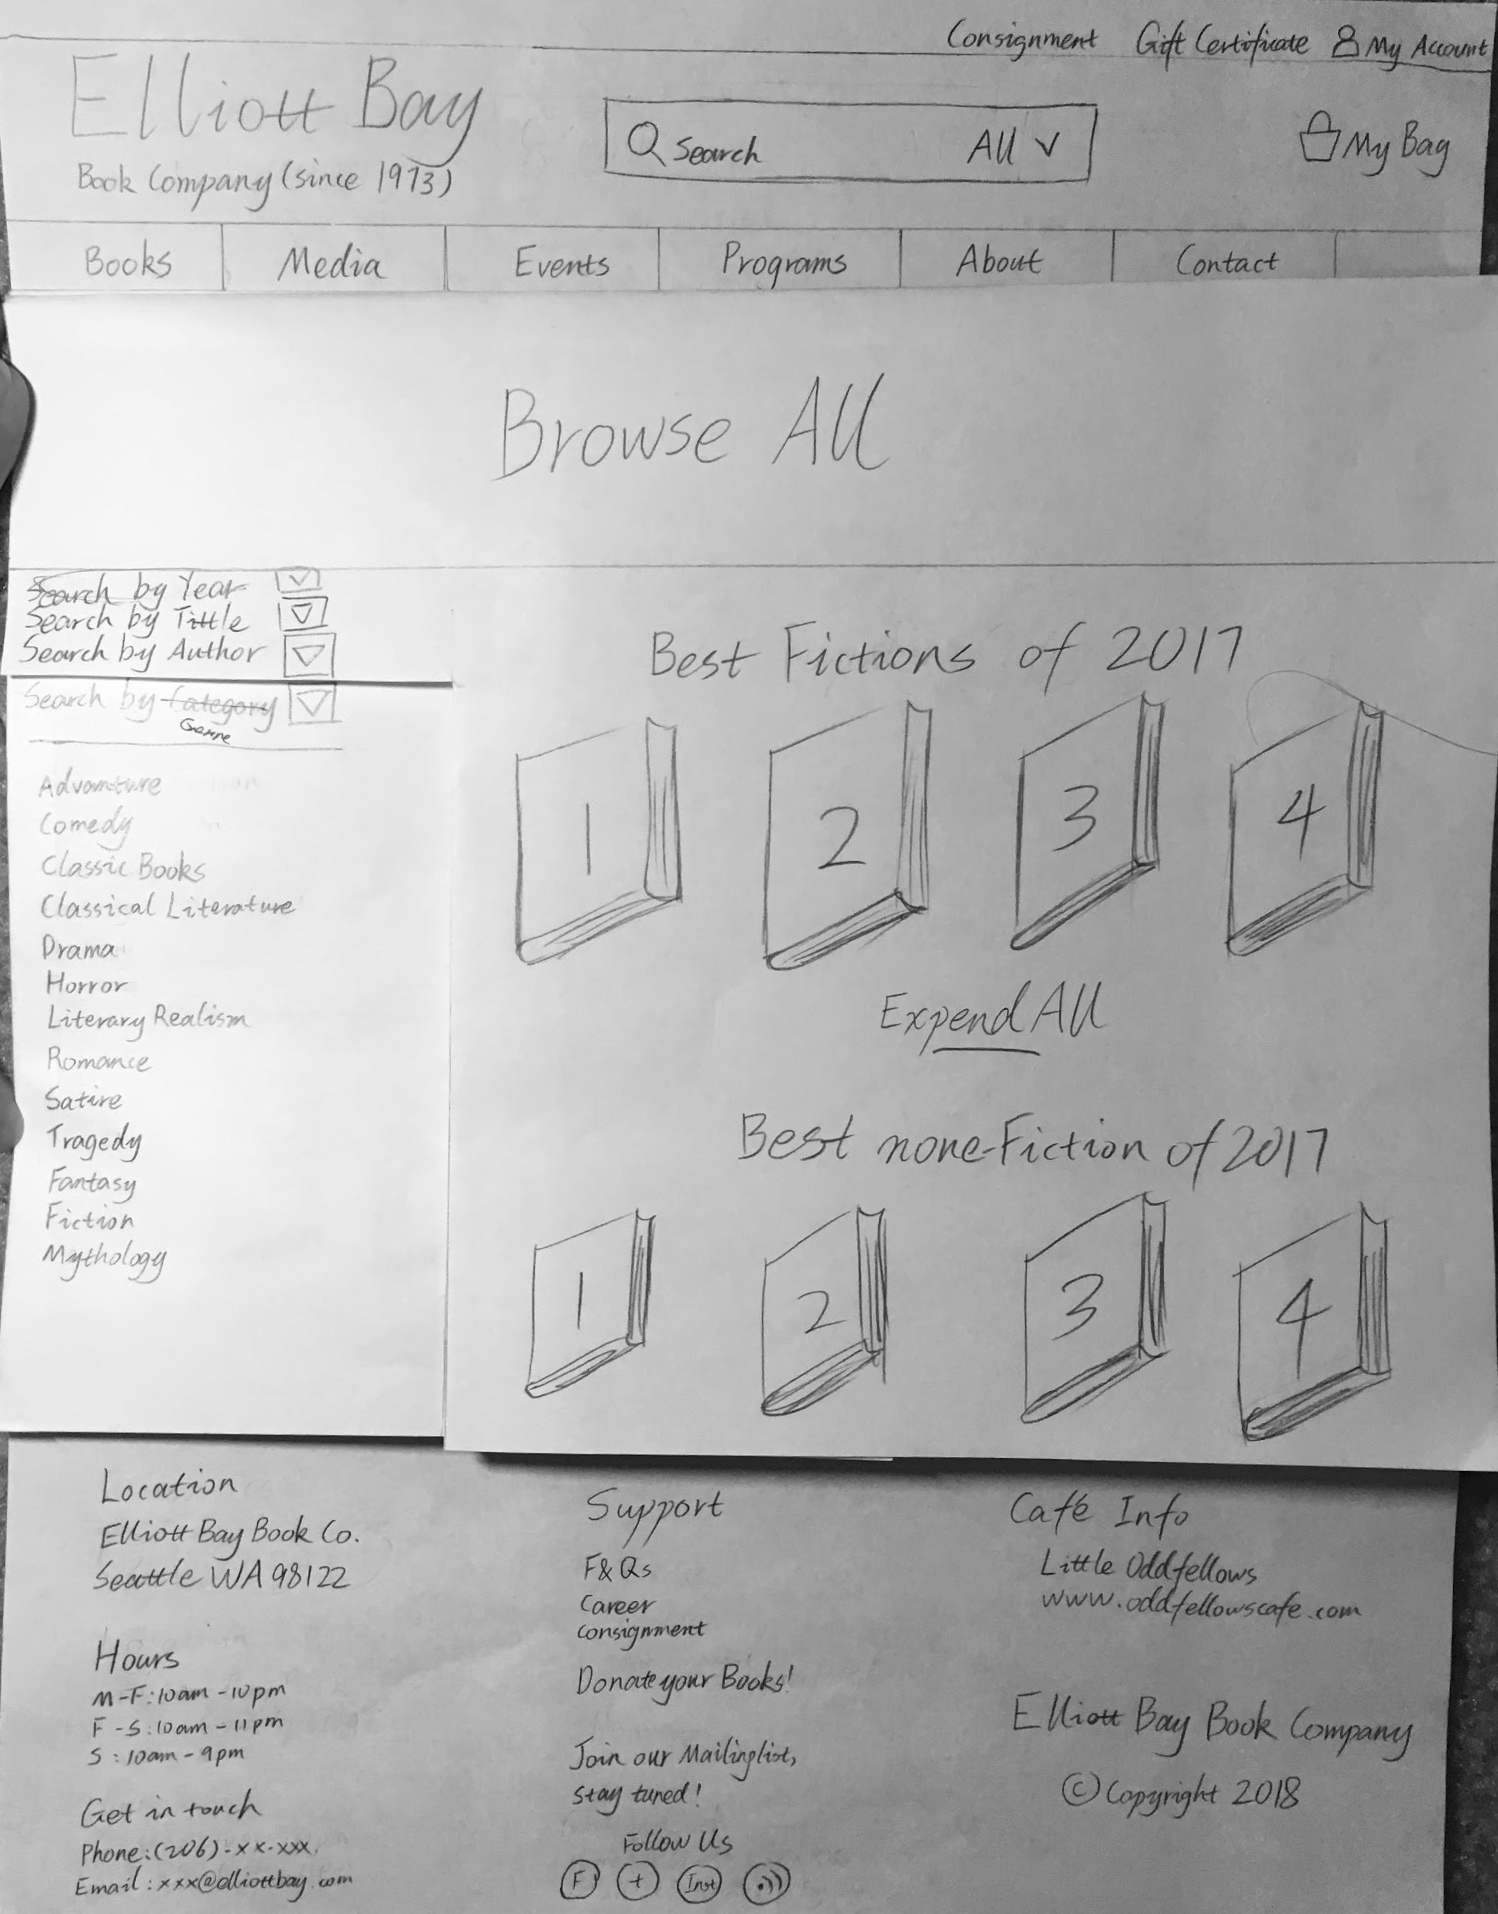 Consignment Gift Certificate My Account
Elliott Bay
Book Company (since 1973)
Search All
My Bag
Books Media Events Programs About Contact
Browse All
Search by Year
Search by Tittle
Search by Author
Search by Category
Genre
Advanture
Comedy
Classic Books
Classical Literature
Drama
Horror
Literary Realism
Romance
Satire
Tragedy
Fantasy
Fiction
Mythology
Best Fictions of 2017
1 2 3 4
Expend All
Best none-Fiction of 2017
1 2 3 4
Location
Elliott Bay Book Co.
Seattle WA 98122
Hours
M-F: 10am - 10pm
F-S: 10am - 11pm
S: 10am - 9pm
Get in touch
Phone: (206)-xx-xxx
Email: xxx@elliottbay.com
Support
F&Qs
Career
Consignment
Donate your Books!
Join our Mailinglist,
stay tuned!
Follow Us
F + Inst
Café Info
Little Oddfellows
www.oddfellowscafe.com
Elliott Bay Book Company
© Copyright 2018